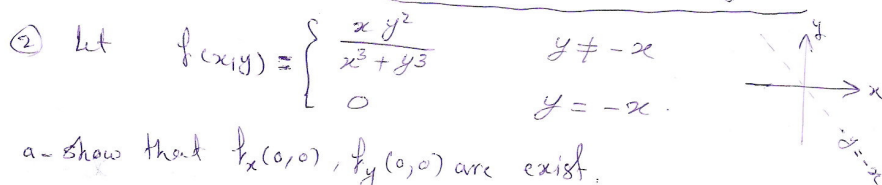 ② Let f(x,y) = { xy² / (x³ + y³)   y ≠ -x
0   y = -x.
y
x
y=-x
a- show that fx(0,0), fy(0,0) are exist.